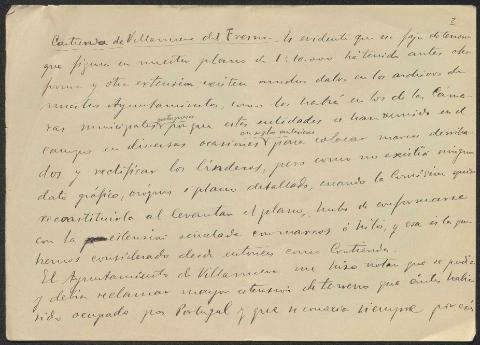 2
Contienda de Villanueva del Fresno. Es evidente que esa faja de terreno
que figura en nuestro plano de 1:10.000 ha tenido antes otra
forma y otra extension existen muchos datos en los archivos de
nuestros Ayuntamientos, como los habrá en los de las Cáma-
ras municipales portuguesas
por que estas entidades se han reunido en el
en siglos anteriores
campo en diversas ocasiones para colocar marcos derriba-
dos y rectificar los linderos, pero como no existia ningun
dato gráfico, croquis o plano detallado, cuando la Comision quiso
reconstituirla al levantar el plano, hubo de conformarse
con la extension señalada con marcos ó hitos, y esa es la que
hemos considerado desde entonces como Contienda.
El Ayuntamiento de Villanueva me hizo notar que se podia
y debia reclamar mayor extension de terreno que antes habia
sido ocupado por Portugal y que se conocia siempre por